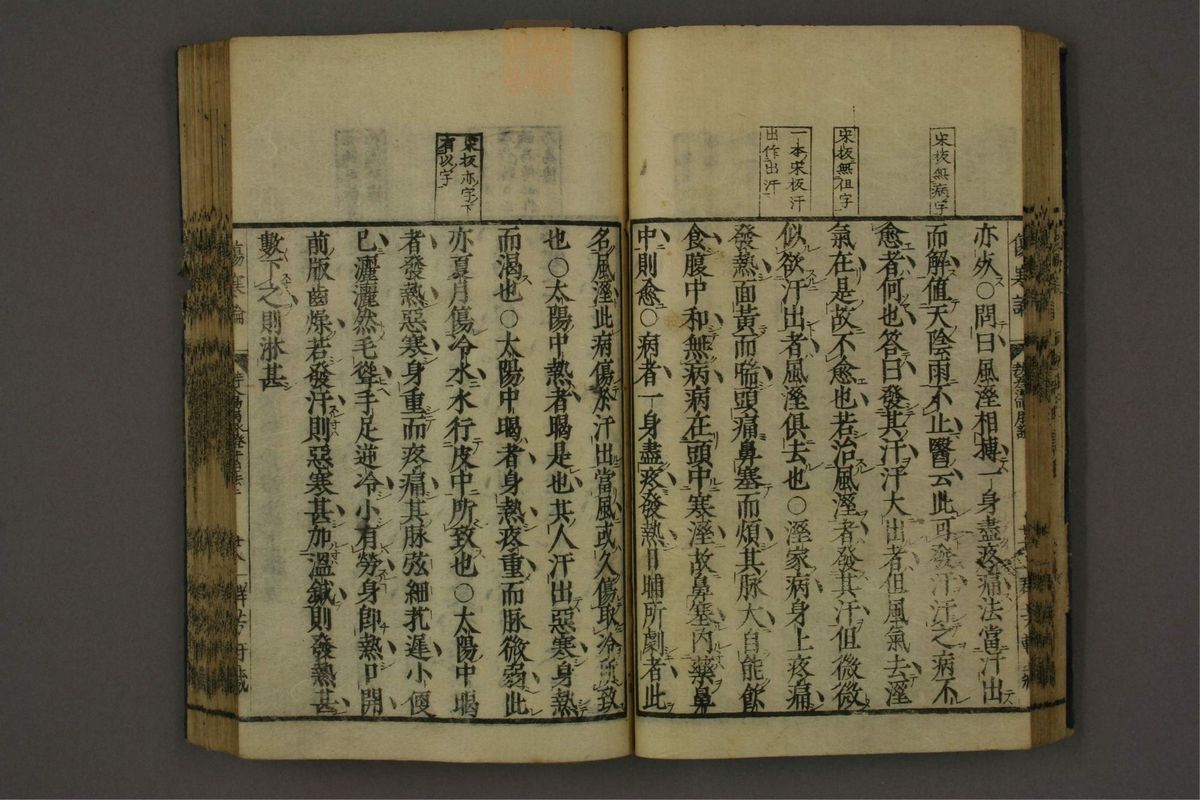 宋板無病字
宋板無但字
一本宋板汗
出作出汗
傷寒論
亦死〇問曰風溼相搏一身盡疼痛法當汗出
而解値天陰雨不止醫云此可發汗汗之病不
愈者何也答曰發其汗汗大出者但風氣去溼
氣在是故不愈也若治風溼者發其汗但微微
似欲汗出者風溼俱去也〇溼家病身上疼痛
發熱面黃而喘頭痛鼻塞而煩其脉大自能飮
食腹中和無病病在頭中寒溼故鼻塞內藥鼻
中則愈〇病者一身盡疼發熱日晡所劇者此
宋板亦字下
有以字
名風溼此病傷於汗出當風或久傷取冷所致
也〇太陽中熱者暍是也其人汗出惡寒身熱
而渴也〇太陽中暍者身熱疼重而脉微弱此
亦夏月傷冷水水行皮中所致也〇太陽中暍
者發熱惡寒身重而疼痛其脉弦細芤遲小便
已灑灑然毛聳手足逆冷小有勞身卽熱口開
前版齒燥若發汗則惡寒甚加溫鍼則發熱甚
數下之則淋甚
傷寒論